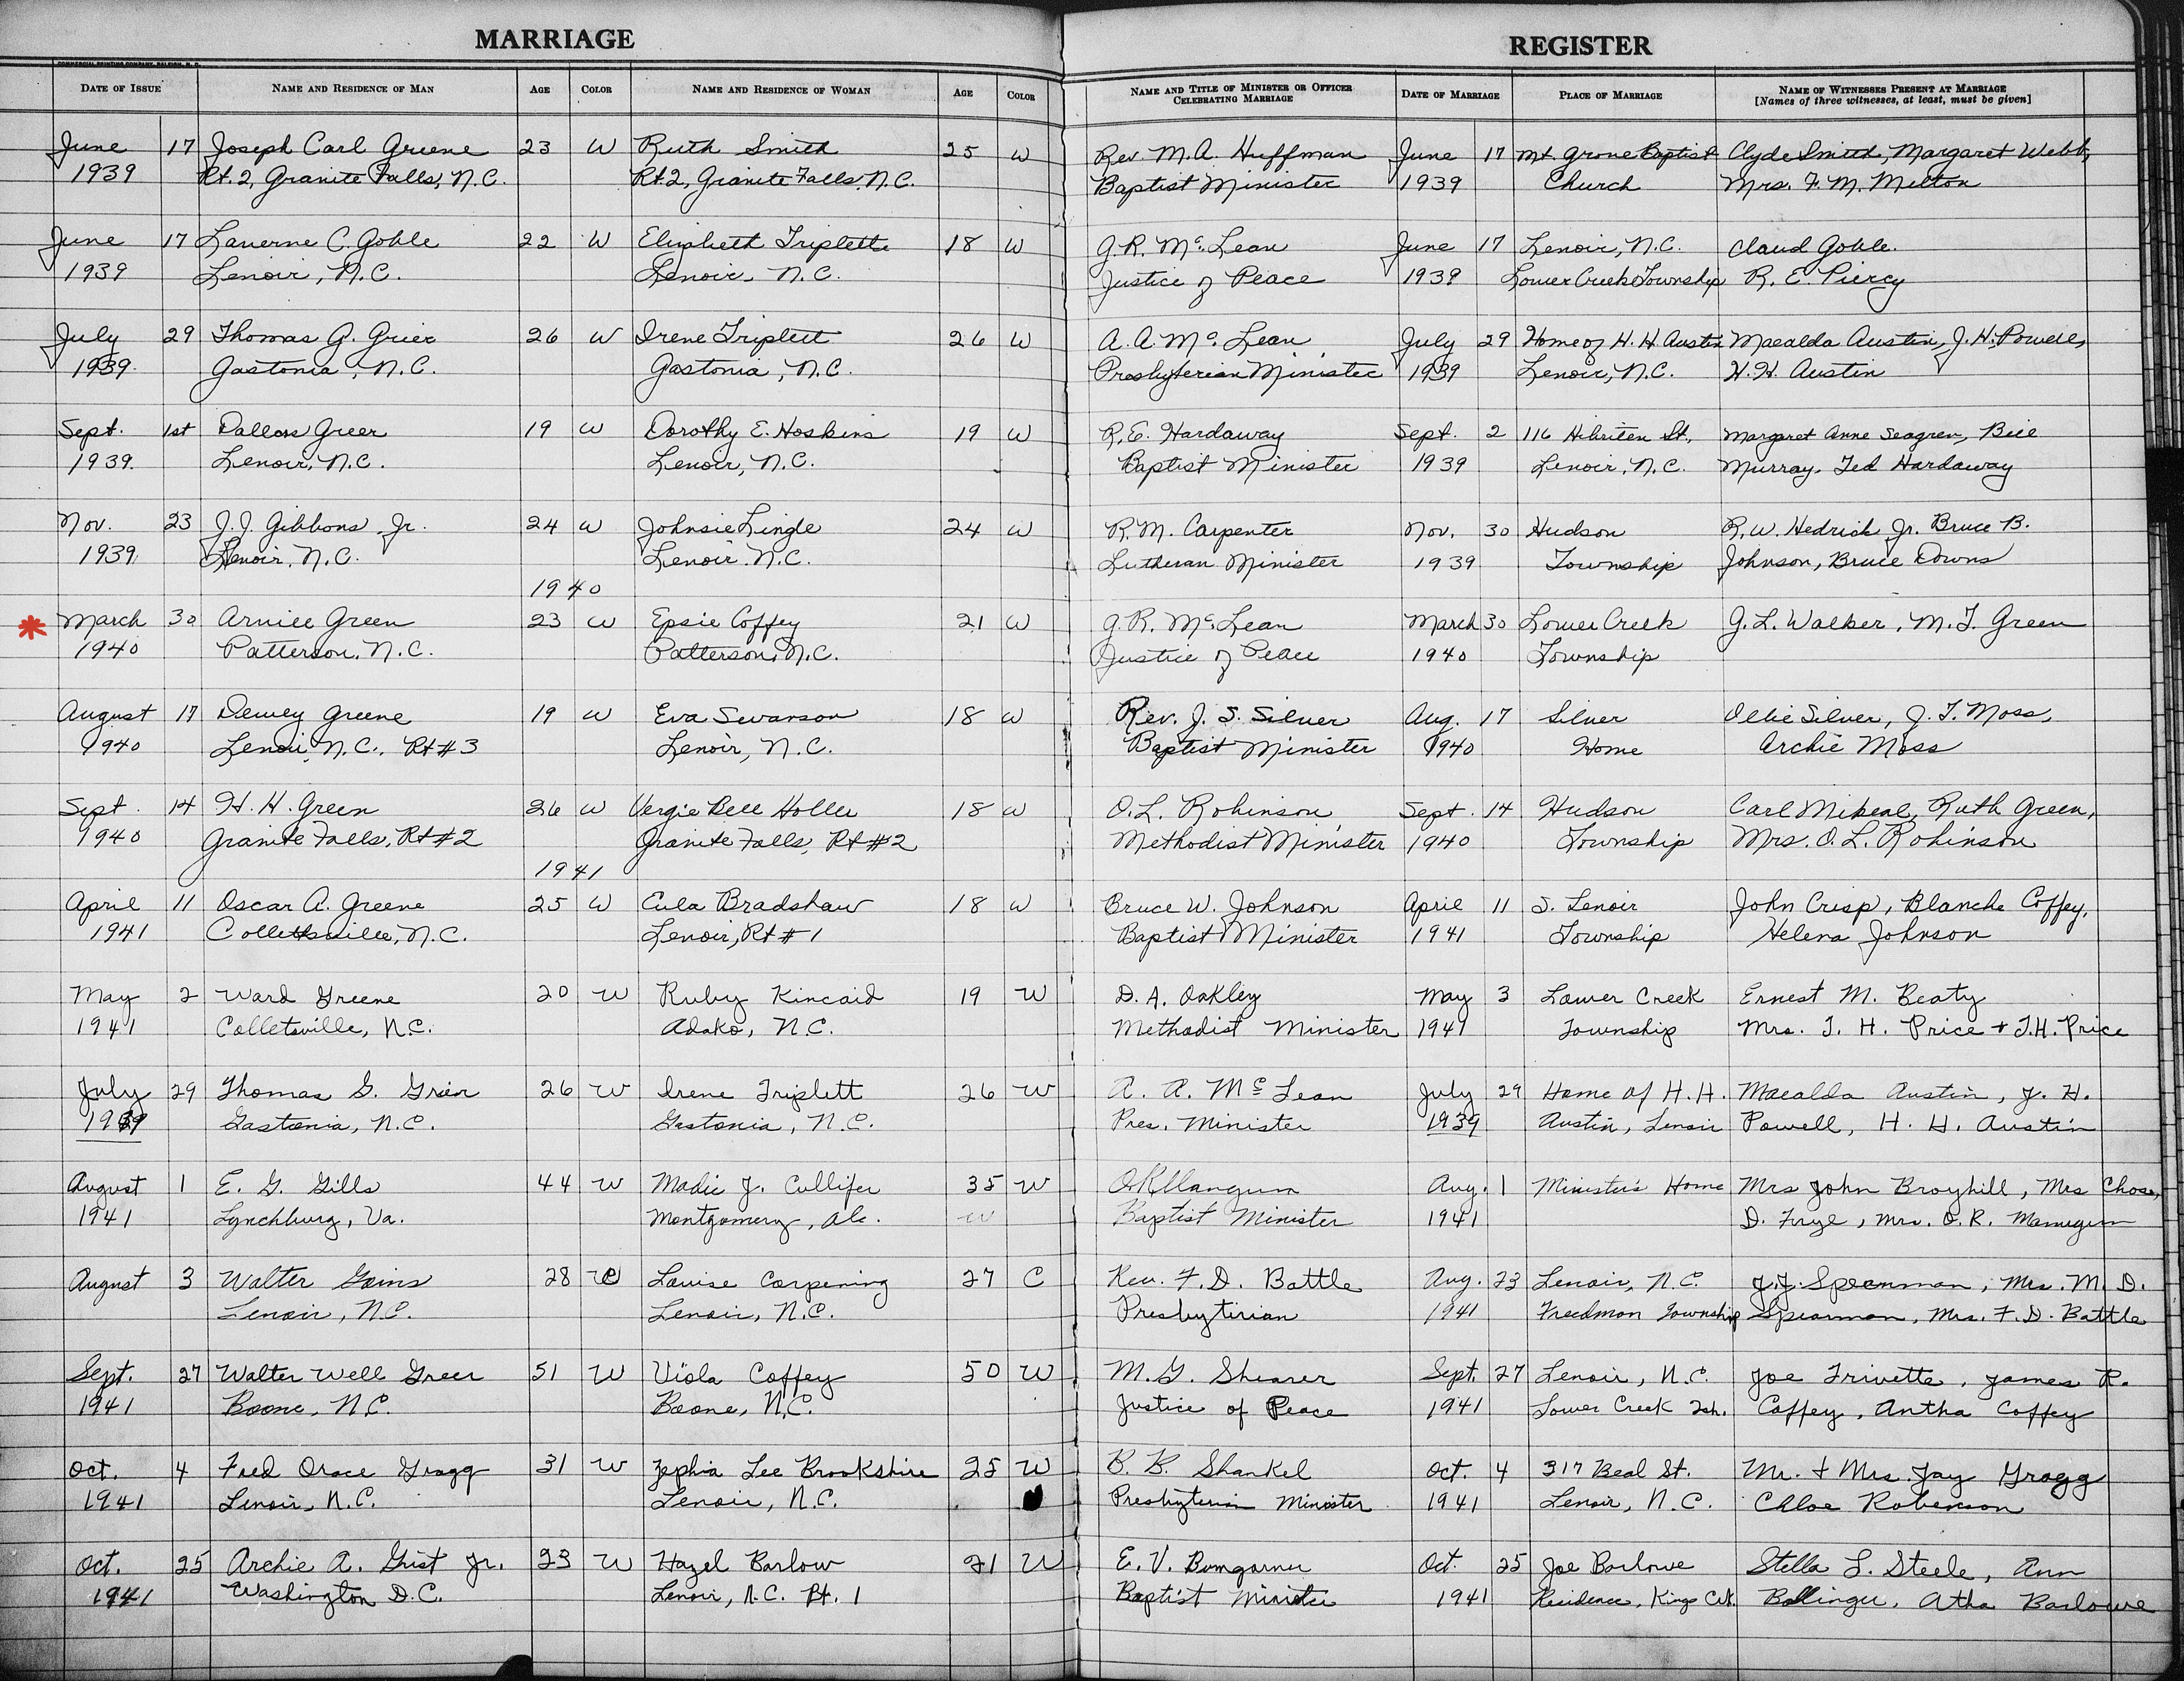 MARRIAGE REGISTER
COMMERCIAL PRINTING COMPANY, RALEIGH, N. C.
DATE OF ISSUE NAME AND RESIDENCE OF MAN AGE COLOR NAME AND RESIDENCE OF WOMAN AGE COLOR NAME AND TITLE OF MINISTER OR OFFICER CELEBRATING MARRIAGE DATE OF MARRIAGE PLACE OF MARRIAGE NAME OF WITNESSES PRESENT AT MARRIAGE [Names of three witnesses, at least, must be given]
June 17 Joseph Carl Greene 23 W Ruth Smith 25 W Rev. M.A. Huffman June 17 Mt. Grove Baptist Clyde Smith, Margaret Webb,
1939 Rt. 2, Granite Falls, N.C. Rt. 2, Granite Falls, N.C. Baptist Minister 1939 Church Mrs. F. M. Melton
June 17 Laverne C. Goble 22 W Elizabeth Triplette 18 W G.R. McLean June 17 Lenoir, N.C. Claud Goble.
1939 Lenoir, N.C. Lenoir, N.C. Justice of Peace 1939 Lower Creek Township R. E. Piercy
July 29 Thomas G. Grier 26 W Irene Triplett 26 W A.A. McLean July 29 Home of H. H. Austin Macalda Austin, J. H. Powell,
1939. Gastonia, N.C. Gastonia, N.C. Presbyterian Minister 1939 Lenoir, N.C. H. H. Austin
Sept. 1st Dallas Greer 19 W Dorothy E. Hoskins 19 W R.E. Hardaway Sept. 2 116 Hibriten St., Margaret Anne Seagren, Bill
1939. Lenoir, N.C. Lenoir, N.C. Baptist Minister 1939 Lenoir, N.C. Murray, Ted Hardaway
Nov. 23 J.J. Gibbons Jr. 24 W Johnsie Lingle 24 W R.M. Carpenter Nov. 30 Hudson R.W. Hedrick Jr. Bruce B.
1939 Lenoir, N.C. Lenoir, N.C. Lutheran Minister 1939 Township Johnson, Bruce Downs
1940
* March 30 Green 23 W Epsie Coffey 21 W G.R. McLean March 30 Lower Creek G.L. Walker, M.T. Green
1940 Patterson, N.C. Patterson, N.C. Justice of Peace 1940 Township
August 17 Dewey Greene 19 W Eva Swanson 18 W Rev. J. S. Silver Aug. 17 Silver Ollie Silver, J. T. Moss,
1940 Lenoir, N.C., Rt #3 Lenoir, N.C. Baptist Minister 1940 Home Archie Moss
Sept. 14 H. H. Green 26 W Vergie Bell Holler 18 W O.L. Robinson Sept. 14 Hudson Carl Mikeal, Ruth Green,
1940 Granite Falls, Rt #2 Granite Falls, Rt #2 Methodist Minister 1940 Township Mrs. O. L. Robinson
1941
April 11 Oscar A. Greene 25 W Eula Bradshaw 18 W Bruce W. Johnson April 11 S. Lenoir John Crisp, Blanche Coffey,
1941 Collettsville, N.C. Lenoir, Rt #1 Baptist Minister 1941 Township Helena Johnson
May 2 Ward Greene 20 W Ruby Kincaid 19 W D.A. Oakley May 3 Lower Creek Ernest M. Beaty
1941 Colletsville, N.C. Adako, N.C. Methodist Minister 1941 Township Mrs. T. H. Price + T.H. Price
July 29 Thomas G. Grier 26 W Irene Triplett 26 W A. A. McLean July 29 Home of H. H. Macalda Austin, J. H.
1939 Gastonia, N.C. Gastonia, N.C. Pres. Minister 1939 Austin, Lenoir Powell, H. H. Austin
August 1 E. G. Gills 44 W Madie J. Cullifer 35 W O.R. Mangum Aug. 1 Minister's Home Mrs John Broyhill, Mrs Chas.
1941 Lynchburg, Va. Montgomery, Ala. W Baptist Minister 1941 D. Frye, Mrs. O. R.
August 3 Walter Goins 28 C Louise Corpening 27 C Rev. F. D. Battle Aug. 23 Lenoir, N.C. J.J. Spearman, Mrs. M. D.
Lenoir, N.C. Lenoir, N.C. Presbyterian 1941 Freedmon Township Spearman, Mrs. F. D. Battle
Sept. 27 Walter Well Greer 51 W Viola Coffey 50 W M.G. Shearer Sept. 27 Lenoir, N.C. Joe Trivette, James R.
1941 Boone, N.C. Boone, N.C. Justice of Peace 1941 Lower Creek Tsh. Coffey, Antha Coffey
Oct. 4 Fred Orace Gragg 31 W Zephia Lee Brookshire 25 W B. B. Shankel Oct. 4 317 Beal St. Mr. + Mrs. Jay Gragg
1941 Lenoir, N.C. Lenoir, N.C. Presbyterian Minister 1941 Lenoir, N.C. Chloe Roberson
Oct. 25 Archie A. Grist Jr. 23 W Hazel Barlow 21 W E. V. Bumgarner Oct. 25 Joe Barlowe Stella L. Steele, Ann
1941 Washington D.C. Lenoir, N.C. Rt. 1 Baptist Minister 1941 Residence, Kings Crk. Bollinger, Atha Barlowe